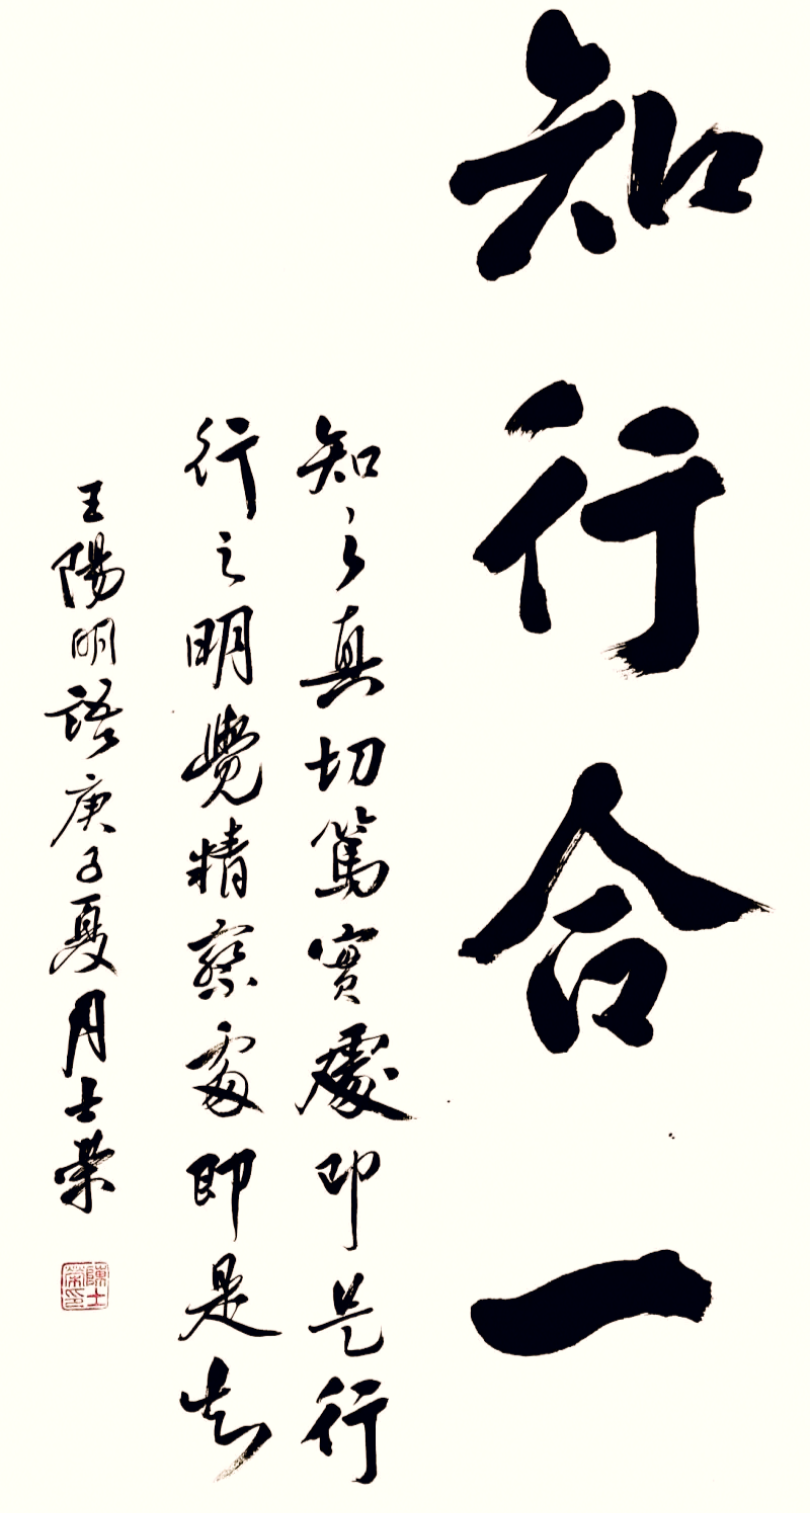 知行合一
知之真切篤實處即是行
行之明覺精察處即是知
王陽明語庚子夏月士榮
陳士榮印